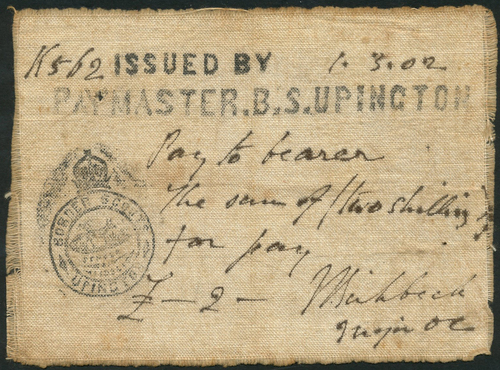 K562 ISSUED BY 1.3.02
PAYMASTER.B.S.UPINGTON
Pay to bearer
The sum of (two shillings)
for pay
£ - 2 -
Major OC
BORDER SCOUTS
UPINGTON